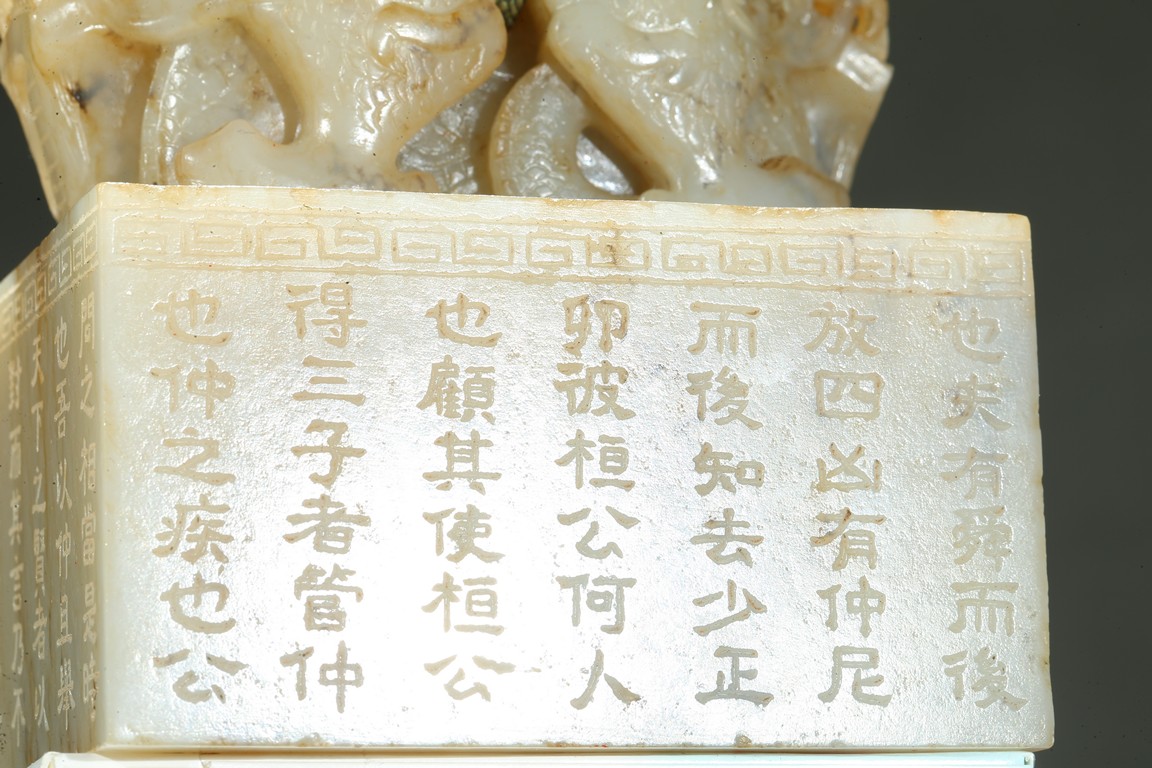 也夫有舜而後
放四凶有仲尼
而後知去少正
卯彼桓公何人
也顧其使桓公
得三子者管仲
也仲之疾也公
問之相當是時
也吾以仲且舉
天下之賢者以
對而其言乃不